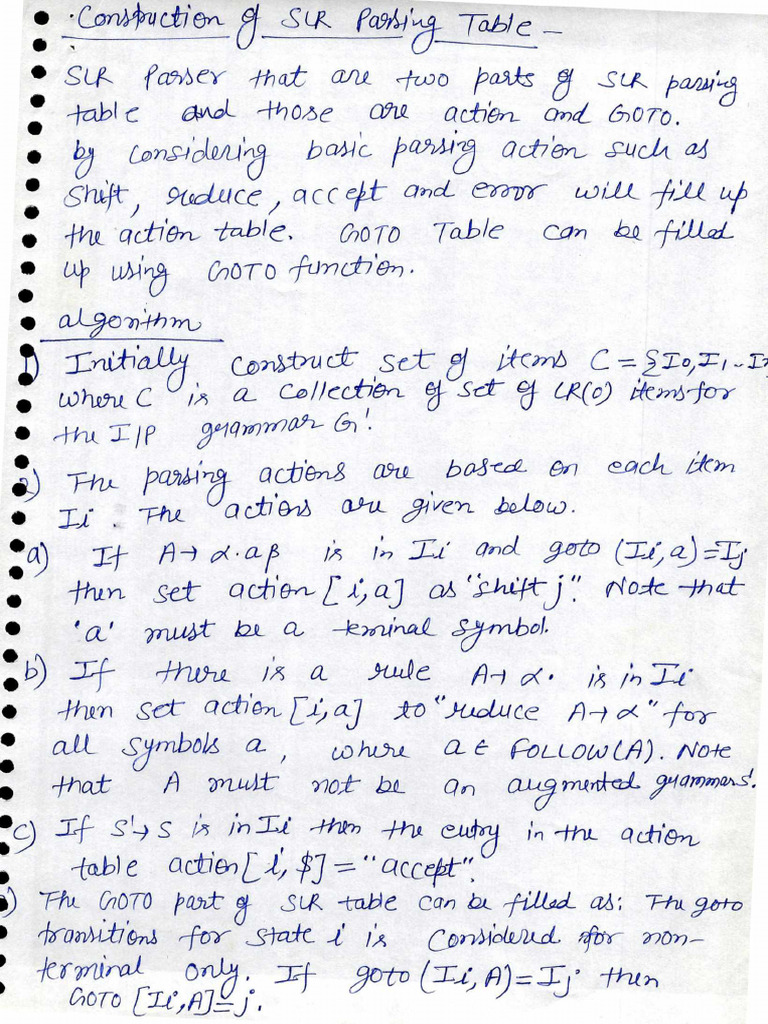 Construction of SLR Parsing Table -
SLR Parser that are two parts of SLR parsing
table and those are action and GOTO.
by considering basic parsing action such as
Shift, reduce, accept and error will fill up
the action table. GOTO Table can be filled
up using GOTO function.
algorithm
1) Initially construct set of items C = {I0, I1 .. In
where C is a collection of set of LR(0) items for
the I/P grammar G'.
2) The parsing actions are based on each item
Ii. The actions are given below.
a) If A → α.aβ is in Ii and goto (Ii, a) = Ij
then set action [i,a] as "shift j". Note that
'a' must be a teminal symbol.
b) If there is a rule A → α. is in Ii
then set action [i,a] to "reduce A → α" for
all symbols a, where a ∈ FOLLOW(A). Note
that A must not be an augmented grammar S'.
c) If S' → S is in Ii then the entry in the action
table action [i, $] = "accept".
) The GOTO part of SLR table can be filled as: The goto
transitions for state i is considered for non-
terminal only. If goto (Ii, A) = Ij then
GOTO [Ii, A] = j.